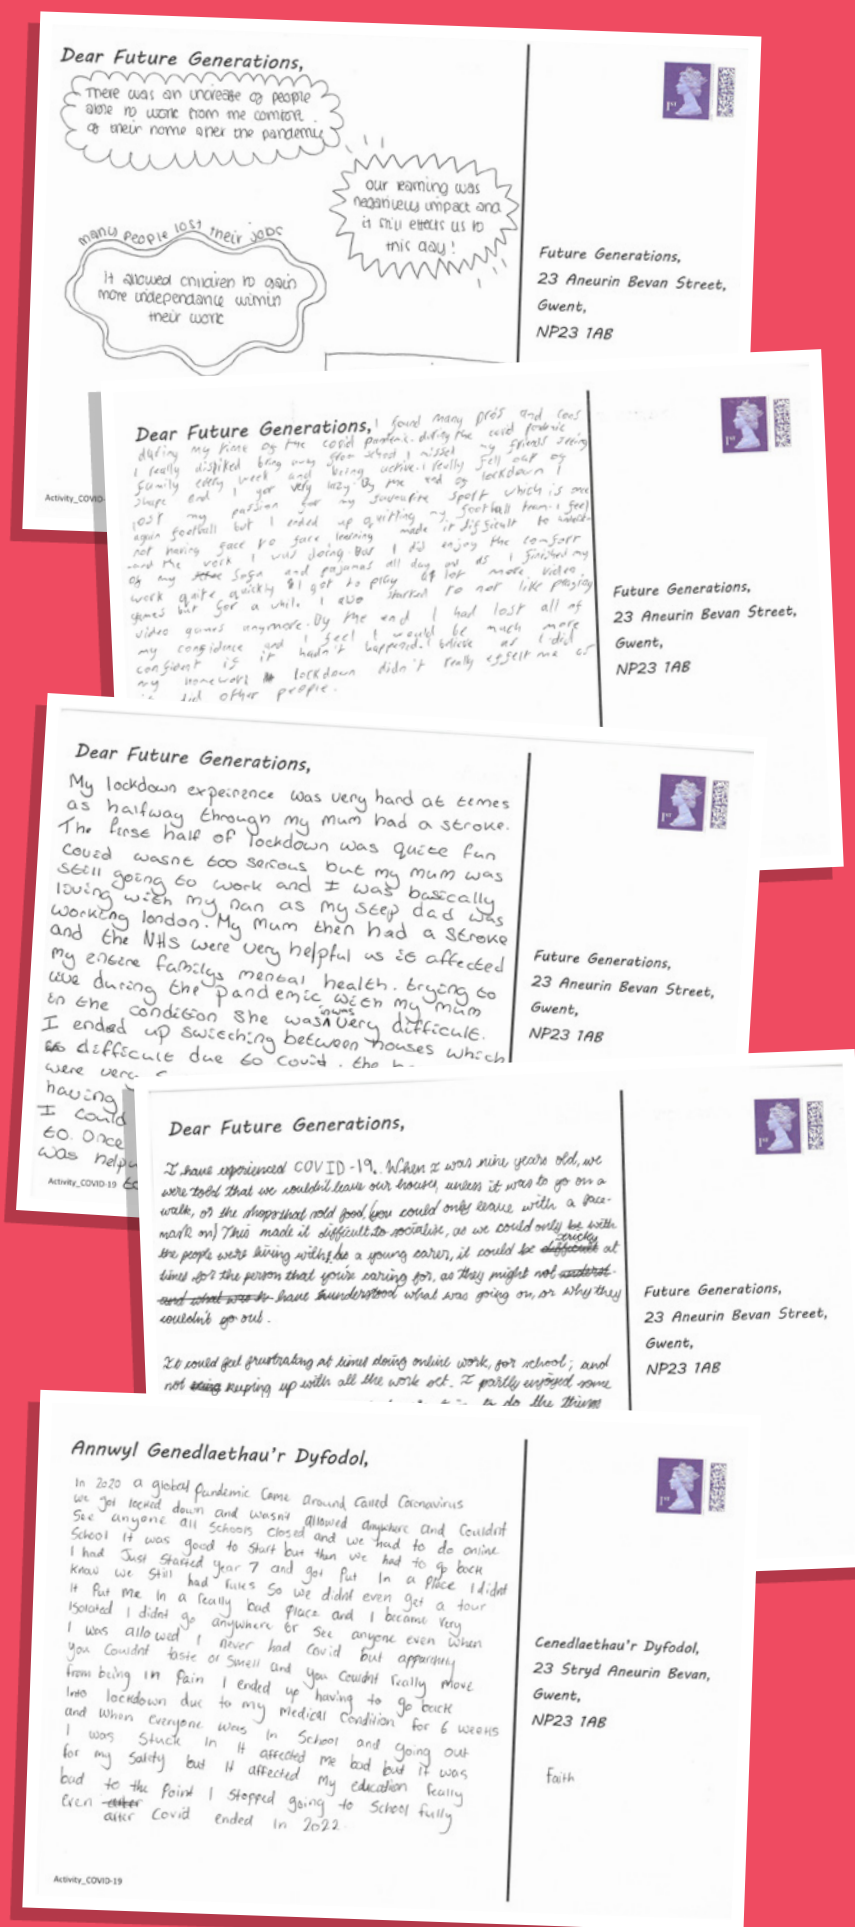 Dear Future Generations,
There was an increase of people
able to work from the comfort
of their home after the pandemic
our learning was
negatively impact and
it still effects us to
this day!
many people lost their jobs
It allowed children to gain
more independance within
their work
1st
Future Generations,
23 Aneurin Bevan Street,
Gwent,
NP23 1AB
Activity_COVID-
Dear Future Generations, I found many pros and cons
during my time of the covid pandemic. during the covid pandemic
I really disliked being away from school I missed my friends seeing
family every week and being active. I really fell out of
shape and I got very lazy. By the end of lockdown I
lost my passion for my favourite sport which is once
again football but I ended up quitting my football team. I feel
not having face to face learning made it difficult to
and the work I was doing. But I did enjoy the comfort
of my sofa and pajamas all day and as I finished my
work quite quickly I got to play a lot more video
games but for a while I also started to not like playing
video games anymore. By the end I had lost all of
my confidence and I feel I would be much more
confient if it hadn't happened. I believe as I did
my homework lockdown didn't really effelt me as
it did other people.
1st
Future Generations,
23 Aneurin Bevan Street,
Gwent,
NP23 1AB
Dear Future Generations,
My lockdown expeirence was very hard at times
as halfway through my mum had a stroke.
The first half of lockdown was quite fun
Covid wasnt too serious but my mum was
still going to work and I was basically
living with my nan as my step dad was
working london. My mum then had a stroke
and the NHS were very helpful as it affected
my entire familys mental health. trying to
live during the pandemic with my mum
in the condition she was in was very difficult.
I ended up switching between houses which
difficult due to covid. the
were very
having
I could
to. Once
was help
1st
Future Generations,
23 Aneurin Bevan Street,
Gwent,
NP23 1AB
Activity_COVID-19
Dear Future Generations,
I have experienced COVID-19. When I was nine years old, we
were told that we couldn't leave our houses, unless it was to go on a
walk, or the shops that sold food, (you could only leave with a face-
mask on) This made it difficult to socialise, as we could only be with
the people we're living with. As a young carer, it could be difficult tricky at
times for the person that you're caring for, as they might not underst-
and what was h- have understood what was going on, or why they
couldn't go out.
It could feel frustrating at times doing online work, for school; and
not being keeping up with all the work set. I partly enjoyed some
to do the things
1st
Future Generations,
23 Aneurin Bevan Street,
Gwent,
NP23 1AB
Annwyl Genedlaethau'r Dyfodol,
In 2020 a global Pandemic Came around Called Coronavirus
we got locked down and wasnt allowed anywhere and Couldnt
See anyone all Schools Closed and we had to do online
School It was good to start but then we had to go back
I had Just Started year 7 and got Put In a Place I didnt
Know we Still had rules So we didnt even get a tour
It Put me In a really bad Place and I became very
Isolated I didnt go anywhere or See anyone even when
I was allowed I never had Covid but apparently
you Couldnt taste or Smell and you Couldnt really move
from being in Pain I ended up having to go back
Into lockdown due to my Medical Condition for 6 weeks
and when everyone was In School and going out
I was Stuck In It affected me bad but It was
for my Safity but It affected My education really
bad to the Point I Stopped going to School fully
even after after Covid ended In 2022.
1st
Cenedlaethau'r Dyfodol,
23 Stryd Aneurin Bevan,
Gwent,
NP23 1AB
Faith
Activity_COVID-19